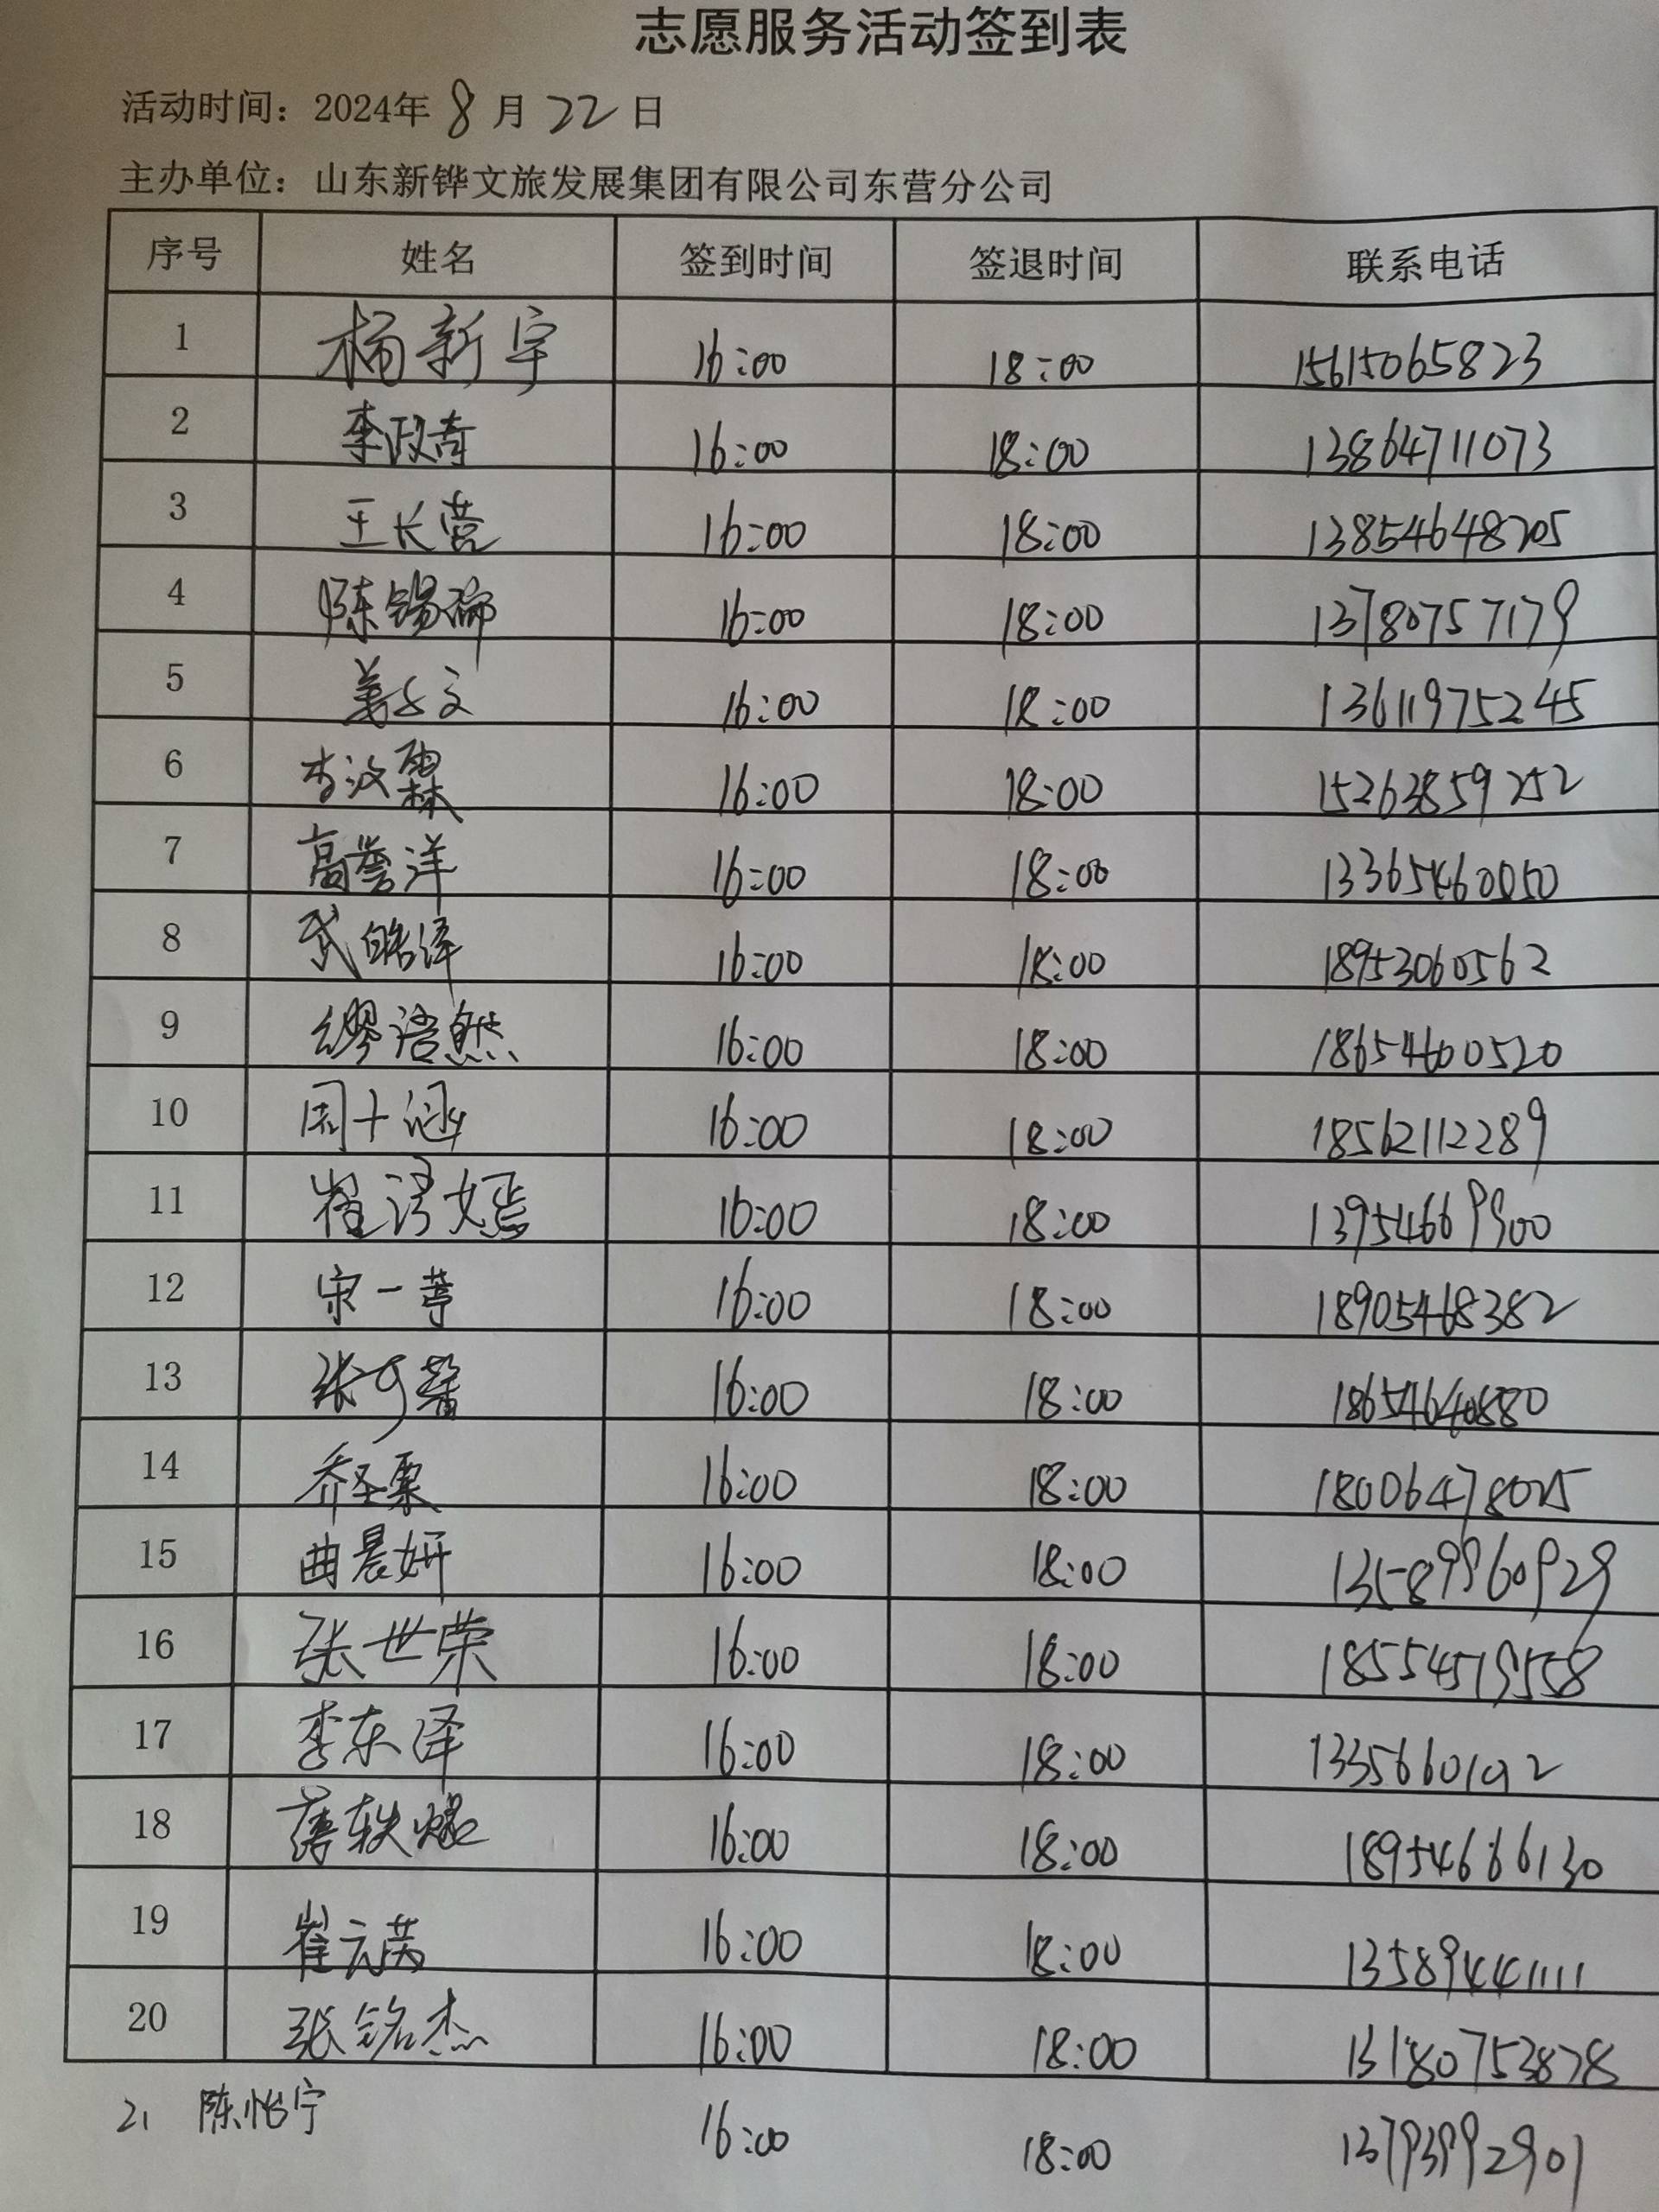 志愿服务活动签到表
活动时间：2024年 8 月 22 日
主办单位：山东新铧文旅发展集团有限公司东营分公司
序号 姓名 签到时间 签退时间 联系电话
1 杨新宇 16:00 18:00 15615065823
2 李政奇 16:00 18:00 13864711073
3 王长营 16:00 18:00 13854648705
4 陈锡瑜 16:00 18:00 13780757179
5 姜文 16:00 18:00 13611975245
6 李汶霖 16:00 18:00 15263859252
7 高誉洋 16:00 18:00 13365460050
8 武皓泽 16:00 18:00 18953060562
9 缪语然 16:00 18:00 18654600520
10 周十 16:00 18:00 18562112289
11 崔译嫣 16:00 18:00 13954669900
12 宋一葶 16:00 18:00 18905468382
13 张可馨 16:00 18:00 18654640880
14 乔圣粟 16:00 18:00 18006478025
15 曲晨妍 16:00 18:00 13589960929
16 张世荣 16:00 18:00 18554519558
17 李东泽 16:00 18:00 1335660192
18 薄轶 16:00 18:00 18954666130
19 崔云茜 16:00 18:00 13589441111
20 张铭杰 16:00 18:00 13180753878
21 陈怡宁 16:00 18:00 13793992901